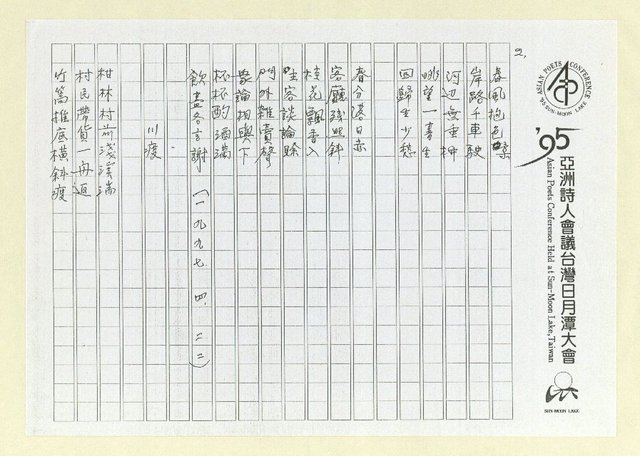 2,
春風抱
岸路千車駛
河辺無垂柳
眺望一書生
回歸生少愁
春分港日
客廳殘照斜
桂花飄香入
哇客談論賒
門外雜賣聲
聚論相與下
杯杯酌酒滿
飲盡各言謝 (一九九七.四.二二)
川渡
柑林村前淺溪湍
村民帶貨一舟返
竹篙推底橫斜渡
ASIAN POETS CONFERENCE
'95 SUN-MOON LAKE
'95
亞洲詩人會議台灣日月潭大會
Asian Poets Conference Held at Sun-Moon Lake,Taiwan
SUN-MOON LAKE